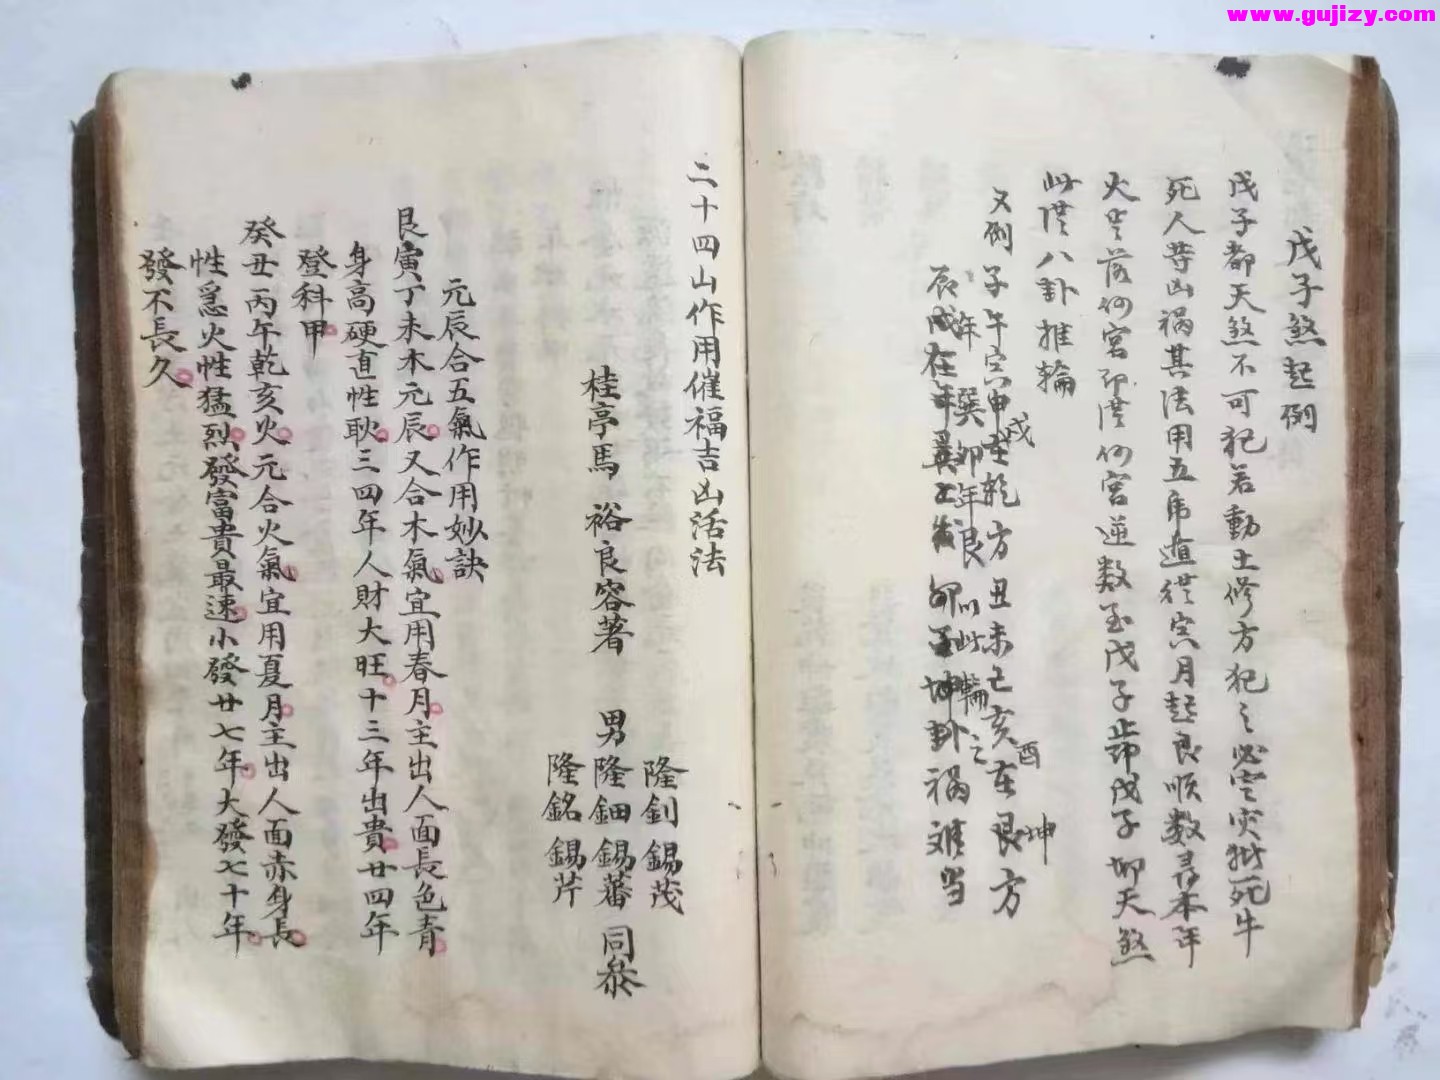 www.gujizy.com
戊子煞起例
戊子都天煞不可犯若動土修方犯之必定灾批死牛
死人等凶禍其法用五虎遁從寅月起艮順数尋本年
火星落何宮即從何宮逆数至戊子止带戊子却天煞
此從八卦推輪
又例子午寅申戌乾方丑未巳亥酉在艮坤方
辰戌年巽卯年艮以此輪之
在
坤卦禍难当
二十四山作用催福吉凶活法
桂亭馬裕良容著
男
隆釗錫茂
隆鈿錫蕃同叅
隆銘錫芹
元辰合五氣作用妙訣
艮寅丁未木元辰又合木氣宜用春月主出人面長色青
身高硬直性耿三四年人財大旺十三年出貴廿四年
登科甲
癸丑丙午乾亥火元合火氣宜用夏月主出人面赤身長
性急火性猛烈發富貴最速小發廿七年大發七十年
發不長久